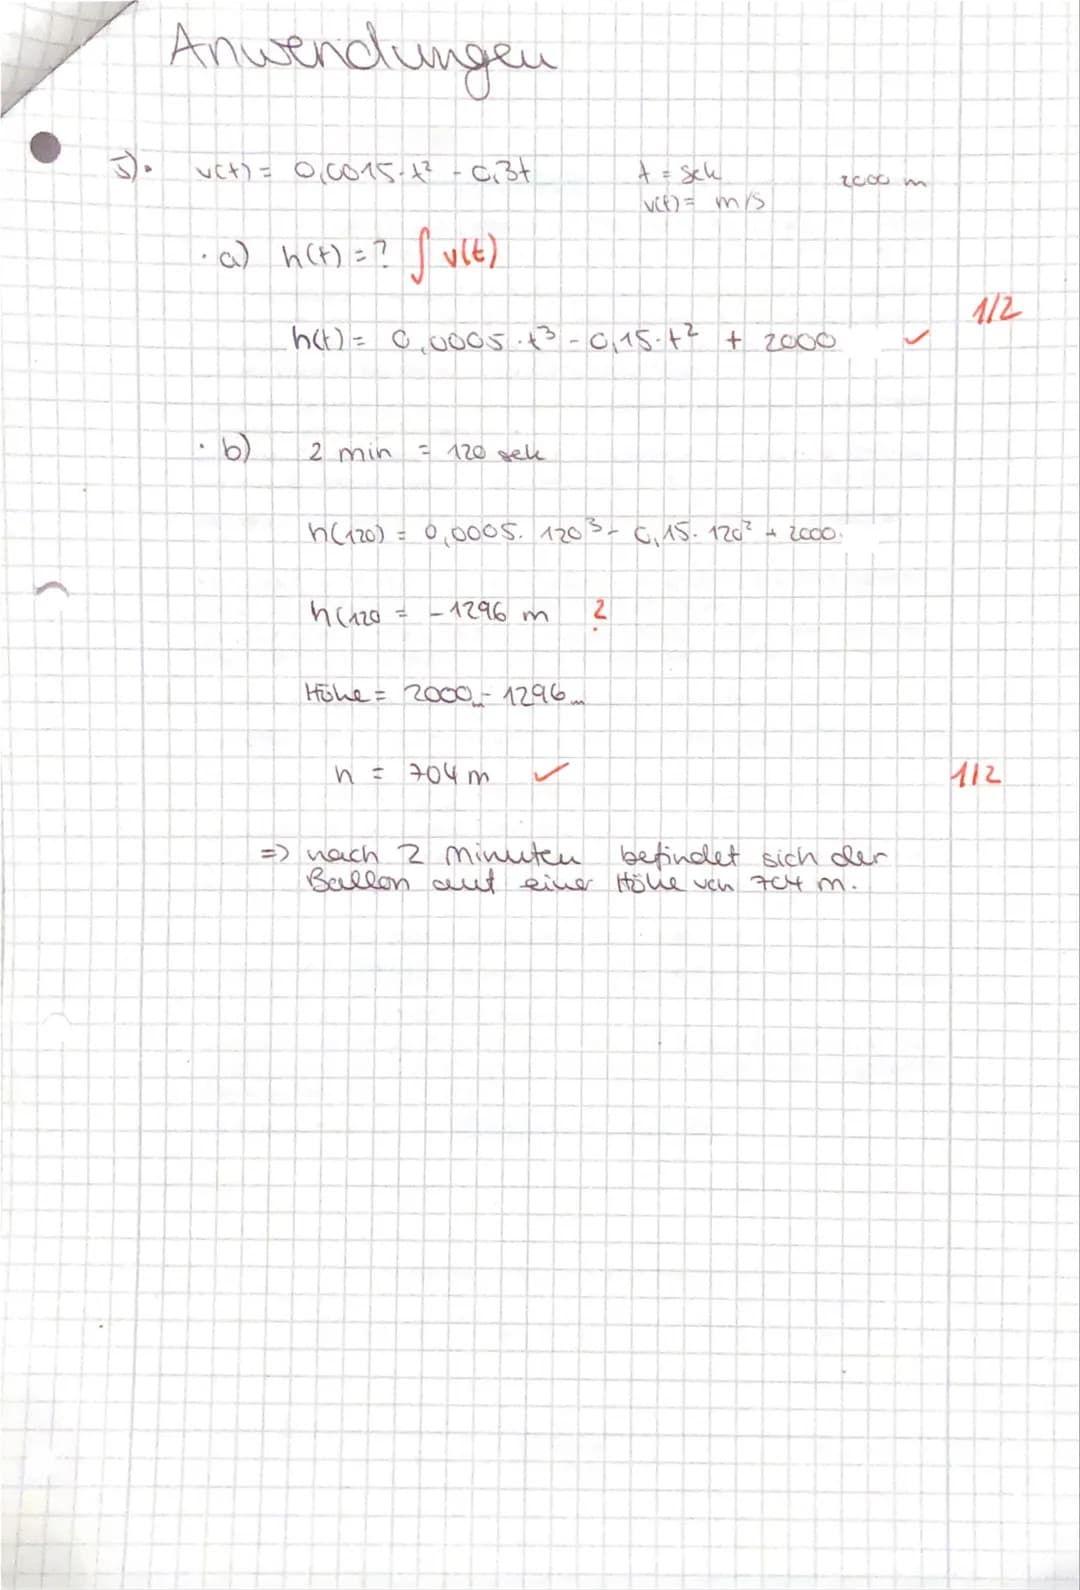 Anwendungen
5). v(t) = 0,0015·t² - 0,3t t = sek 2000 m
v(t) = m/s
· a) h(t) = ? ∫ v(t)
1/2
h(t) = 0,0005·t³ - 0,15·t² + 2000 ✓
· b) 2 min = 120 sek
h(120) = 0,0005. 120³ - 0,15. 120² + 2000.
h(120 = - 1296 m ?
Höhe = 2000m - 1296m
h = 704 m ✓ 1/2
=> nach 2 Minuten befindet sich der
Ballon auf einer Höhe von 704 m.